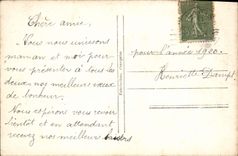 Chère amie.
Nous nous unissons
maman et moi pour
vous présenter à tous les
deux nos meilleurs vœux
de bonheur.
Nous espérons vous revoir
bientôt et en attendant
recevez nos meilleur baisers
pour l'année 1920.
Henriette